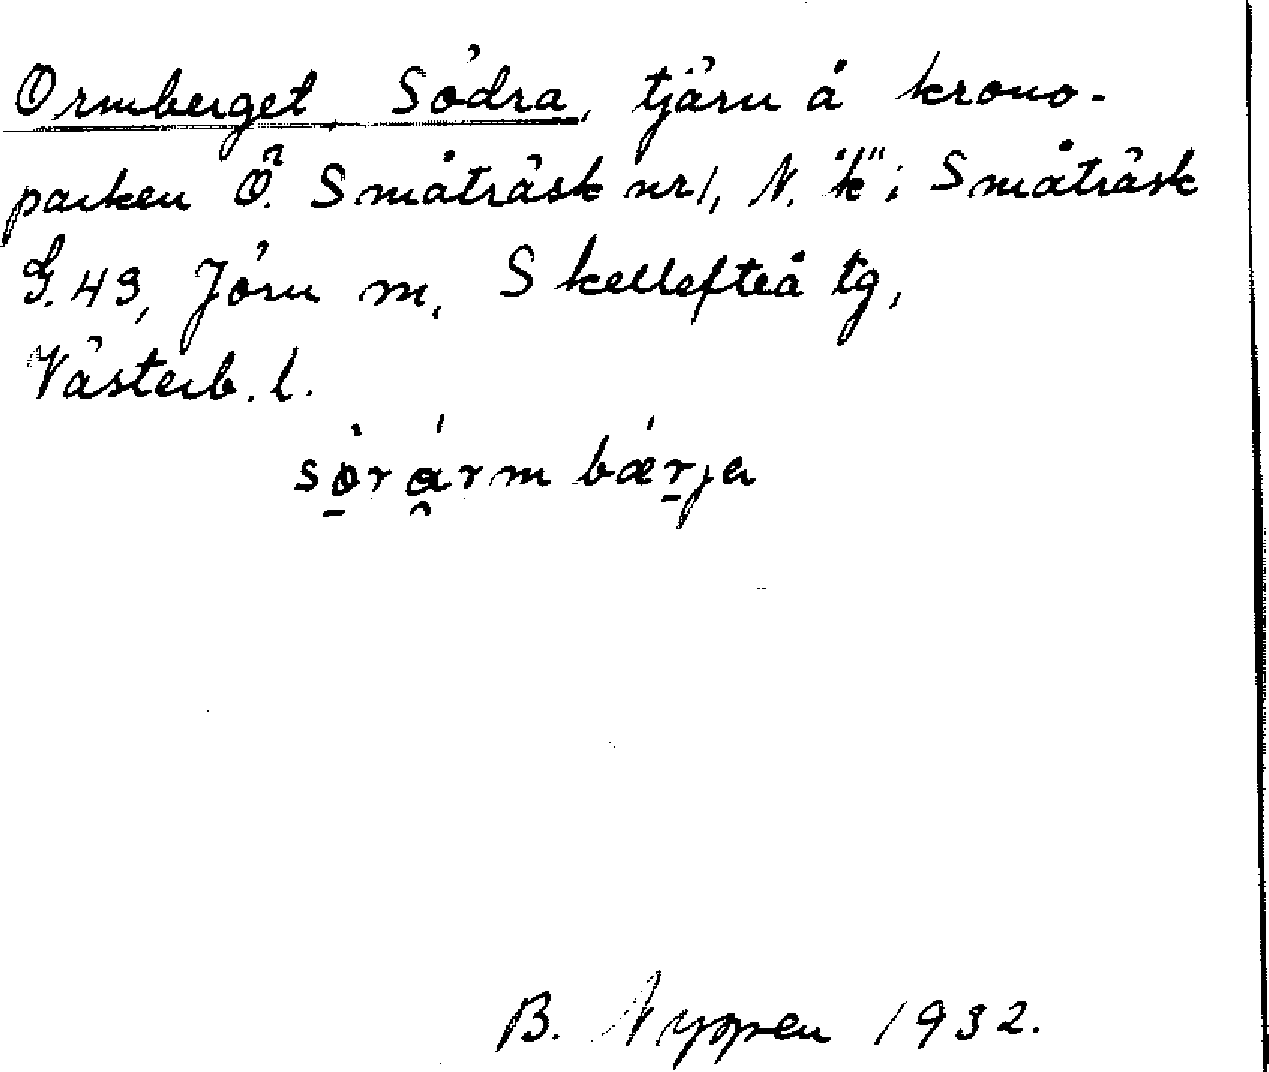 Ormberget, Södra, tjärn å krono-
parken Ö. Småträsk nr 1, N. "k" i Småträsk
G. 43, Jörn m, Skellefteå tg,
Västerb. l.
sörármbǽrja
B. Nyppen 1932.